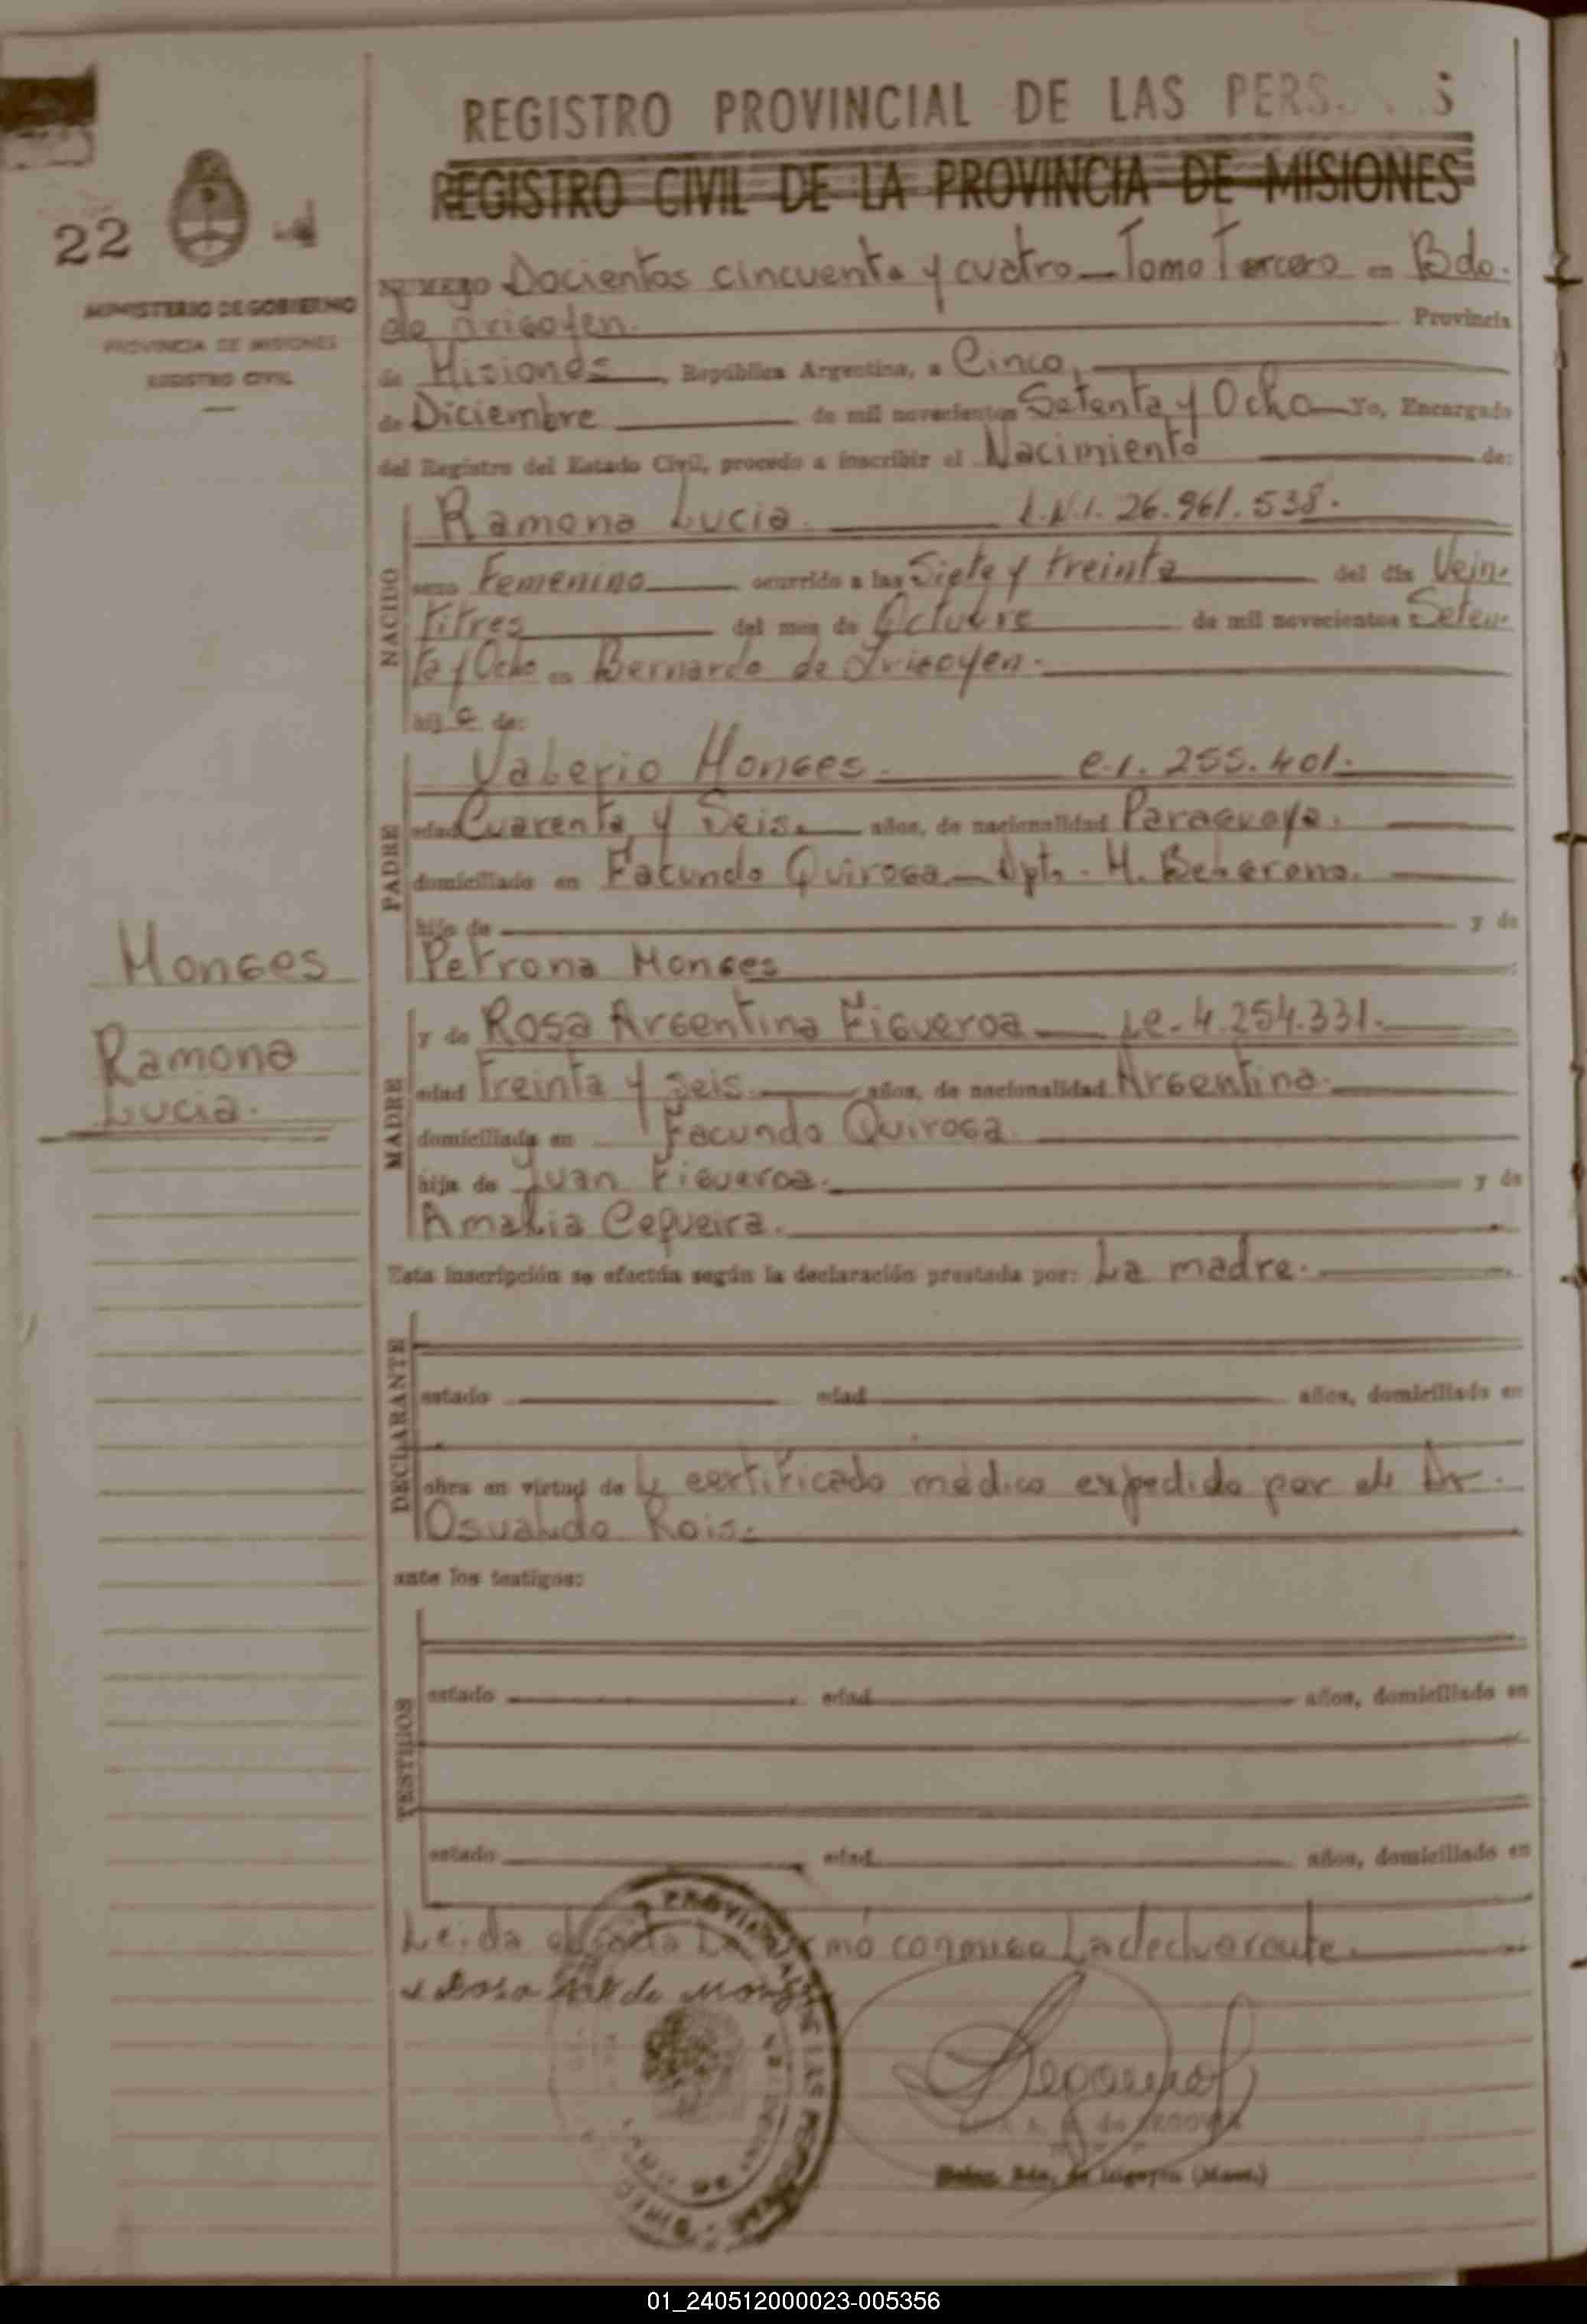 REGISTRO PROVINCIAL DE LAS PERS
REGISTRO CIVIL DE LA PROVINCIA DE MISIONES
22
MINISTERIO DE GOBIERNO
PROVINCIA DE MISIONES
REGISTRO CIVIL
NUMERO Docientos cincuenta y cuatro - Tomo Tercero en Bdo.
de Irigoyen. Provincia
de Misiones, República Argentina, a Cinco,
de Diciembre de mil novecientos Setenta y Ocho Yo, Encargado
del Registro del Estado Civil, procedo a inscribir el Nacimiento de:
NACIDO
Ramona Lucia. D.N.I. 26.961.538.
sexo Femenino ocurrido a las Siete y treinta del día Vein-
titres del mes de Octubre de mil novecientos Seten-
ta y Ocho en Bernardo de Irigoyen.
hija de:
PADRE
Valerio Monges. C.I. 255.401.
edad Cuarenta y Seis. años, de nacionalidad Paraguaya.
domiciliado en Facundo Quiroga - Dpto. M. Belgrano.
hijo de y de
Petrona Monges
Monges
Ramona
Lucia.
MADRE
y de Rosa Argentina Figueroa L.C. 4.254.331.
edad Treinta y seis años, de nacionalidad Argentina.
domiciliada en Facundo Quiroga
hija de Juan Figueroa. y de
Amalia Cequeira.
Esta inscripción se efectúa según la declaración prestada por: La madre.
DECLARANTE
estado edad años, domiciliado en
obra en virtud de el certificado médico expedido por el Dr.
Osvaldo Rois.
ante los testigos:
TESTIGOS
estado edad años, domiciliado en
estado edad años, domiciliado en
Leida el acta La firmó conmigo La declarante.
Rosa de Monges
Deleg. Bdo. de Irigoyen (Mnes.)
01_240512000023-005356